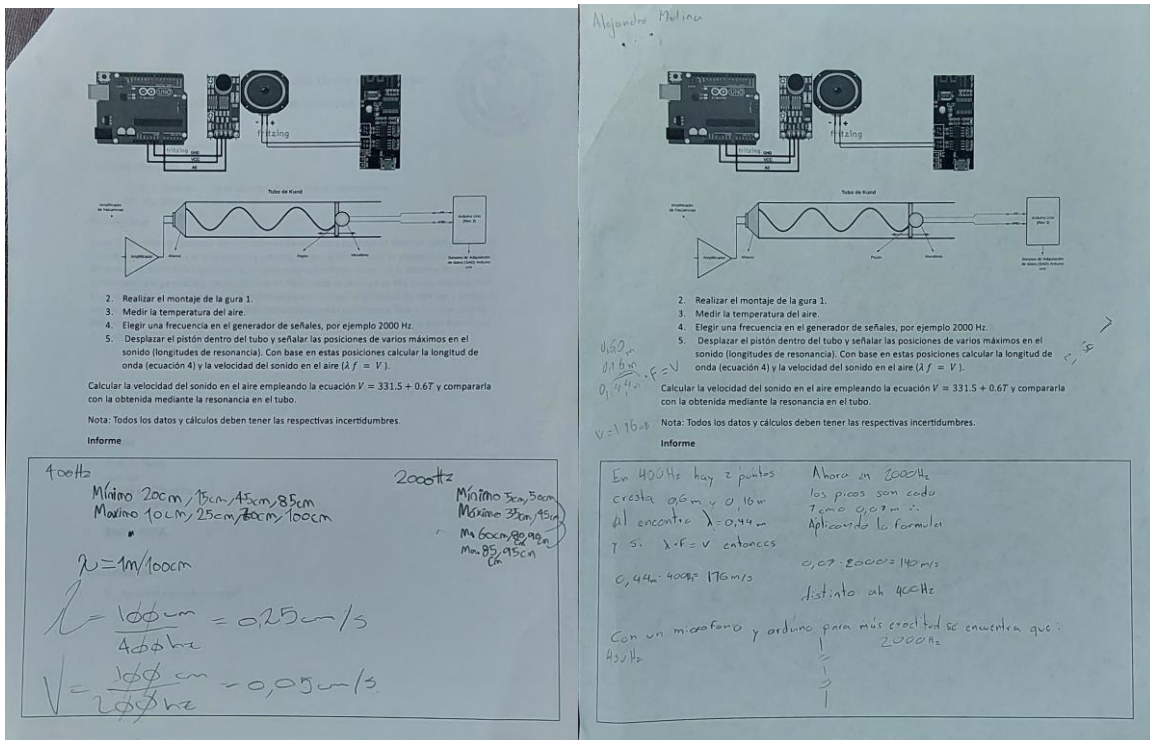 fritzing
GND
VCC
A0
fritzing
Tubo de Kund
Amplificador
de frecuencias
Amplificador
Altavoz
Pistón
Micrófono
Arduino Uno
(Rev 3)
Sistema de Adquisición
de datos (SAD) Arduino
uno
2. Realizar el montaje de la gura 1.
3. Medir la temperatura del aire.
4. Elegir una frecuencia en el generador de señales, por ejemplo 2000 Hz.
5. Desplazar el pistón dentro del tubo y señalar las posiciones de varios máximos en el
sonido (longitudes de resonancia). Con base en estas posiciones calcular la longitud de
onda (ecuación 4) y la velocidad del sonido en el aire (λ f = V ).
Calcular la velocidad del sonido en el aire empleando la ecuación V = 331.5 + 0.6T y compararla
con la obtenida mediante la resonancia en el tubo.
Nota: Todos los datos y cálculos deben tener las respectivas incertidumbres.
Informe
400Hz
Mínimo 20cm, 15cm, 45cm, 85cm
Maximo 10cm, 25cm, 70cm, 100cm
λ = 1m/100cm
= 100 cm / 400 hz = 0,25 cm/s
V = 100 cm / 200 hz = 0,05 cm/s
2000Hz
Mínimo 5cm, 50cm
Máximo 35cm, 45cm
Mn 60cm, 80, 90cm
Max 85, 95cm
Alejandro Molina
fritzing
GND
VCC
A0
fritzing
Tubo de Kund
Amplificador
de frecuencias
Amplificador
Altavoz
Pistón
Micrófono
Arduino Uno
(Rev 3)
Sistema de Adquisición
de datos (SAD) Arduino
uno
2. Realizar el montaje de la gura 1.
3. Medir la temperatura del aire.
4. Elegir una frecuencia en el generador de señales, por ejemplo 2000 Hz.
5. Desplazar el pistón dentro del tubo y señalar las posiciones de varios máximos en el
sonido (longitudes de resonancia). Con base en estas posiciones calcular la longitud de
onda (ecuación 4) y la velocidad del sonido en el aire (λ f = V ).
0,60 m
0,16 m
0,44 m · F = V
Calcular la velocidad del sonido en el aire empleando la ecuación V = 331.5 + 0.6T y compararla
con la obtenida mediante la resonancia en el tubo.
Nota: Todos los datos y cálculos deben tener las respectivas incertidumbres.
Informe
En 400Hz hay 2 puntos
cresta 0,6m y 0,16m
al encontra λ = 0,44m
y si λ·F = V entonces
0,44m · 400Hz = 176m/s
Ahora en 2000Hz
los picos son cada
7cm o 0,07m ∴
Aplicando la formula
0,07 · 2000 = 140 m/s
distinto ah 400Hz
Con un microfono y arduino para más exactitud se encuentra que:
2000Hz